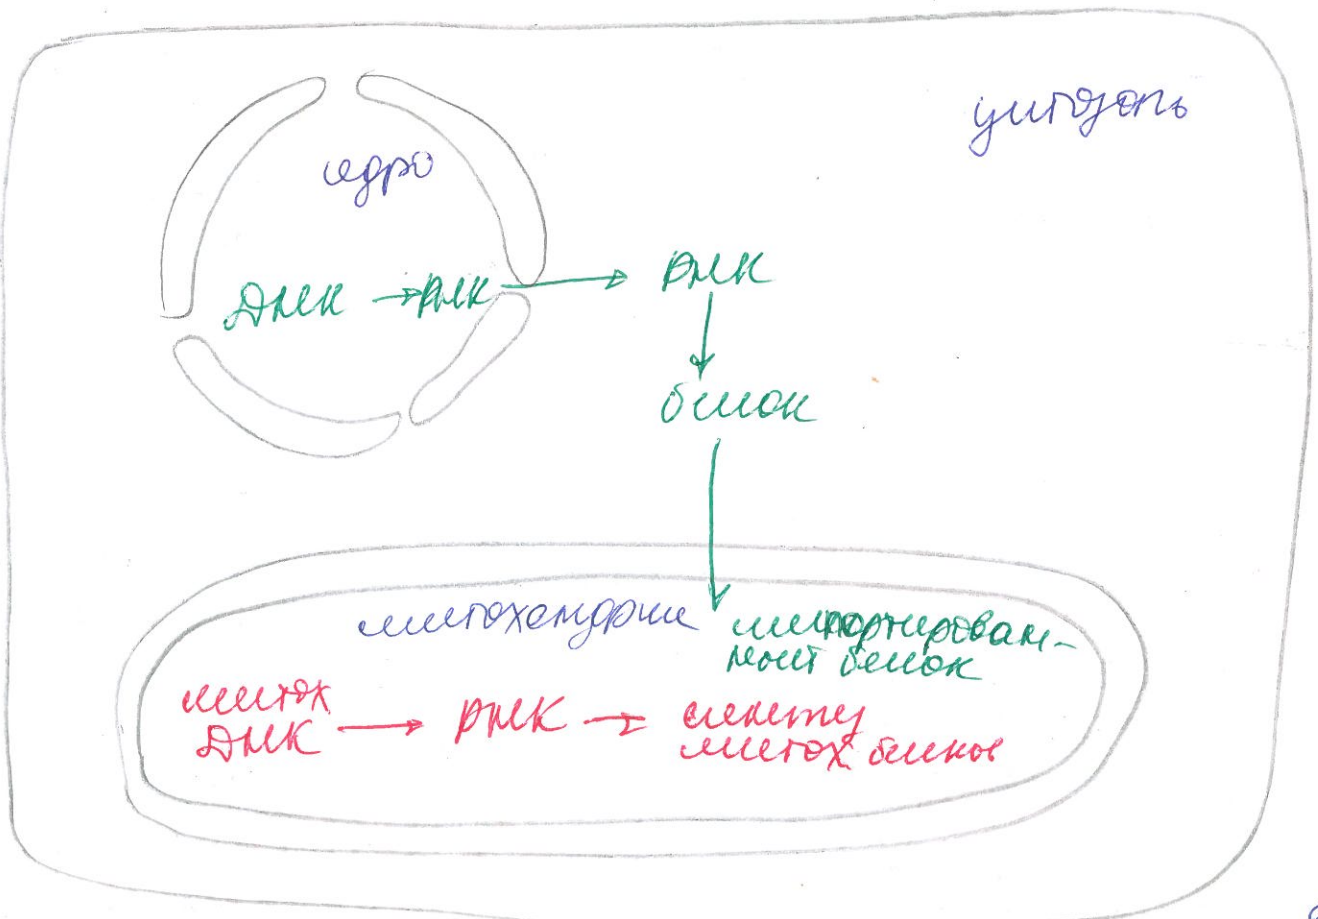 цитозоль
ядро
ДНК → РНК → РНК
белок
митохондрии
импортирован-
ный белок
митох
ДНК → РНК → синтез
митох. белков